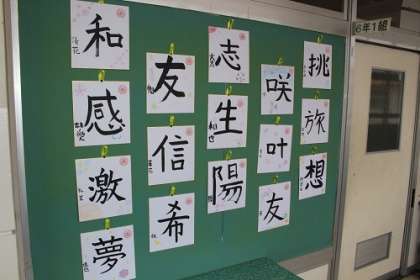 6年1組
和
感
激
夢
友
信
希
志
生
陽
咲
叶
友
挑
旅
想